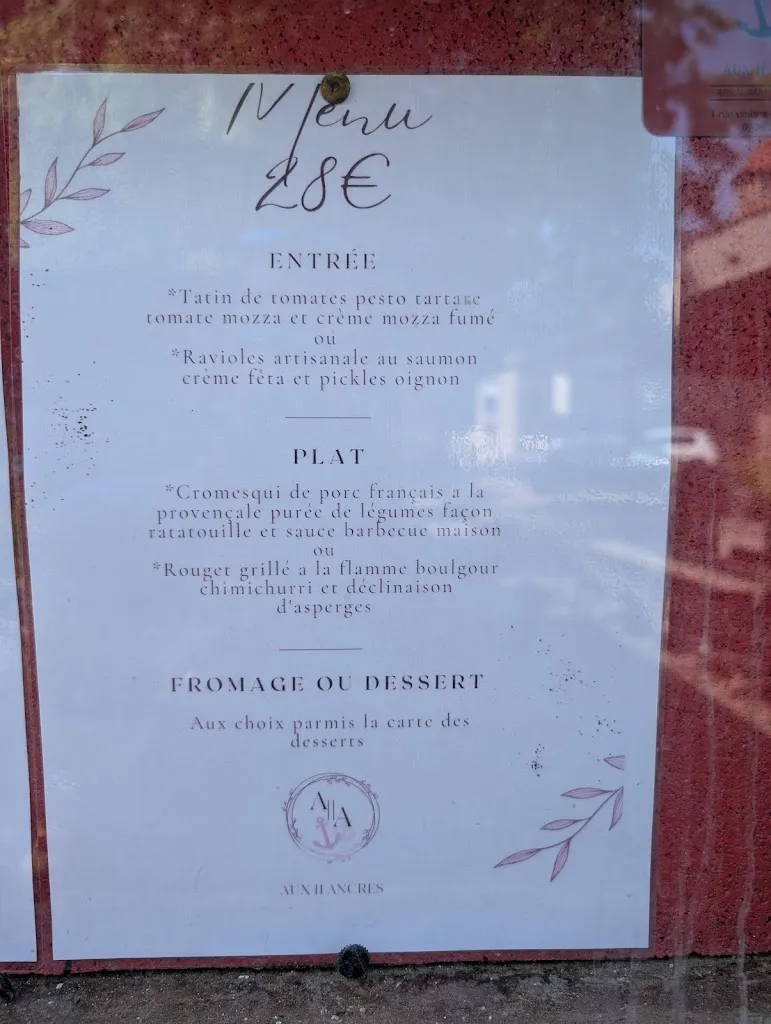 Menu
28€
ENTRÉE
*Tatin de tomates pesto tartare
tomate mozza et crème mozza fumé
ou
*Ravioles artisanale au saumon
crème féta et pickles oignon
PLAT
*Cromesqui de porc français a la
provençale purée de légumes façon
ratatouille et sauce barbecue maison
ou
*Rouget grillé a la flamme boulgour
chimichurri et déclinaison
d'asperges
FROMAGE OU DESSERT
Aux choix parmis la carte des
desserts
A||A
AUX II ANCRES